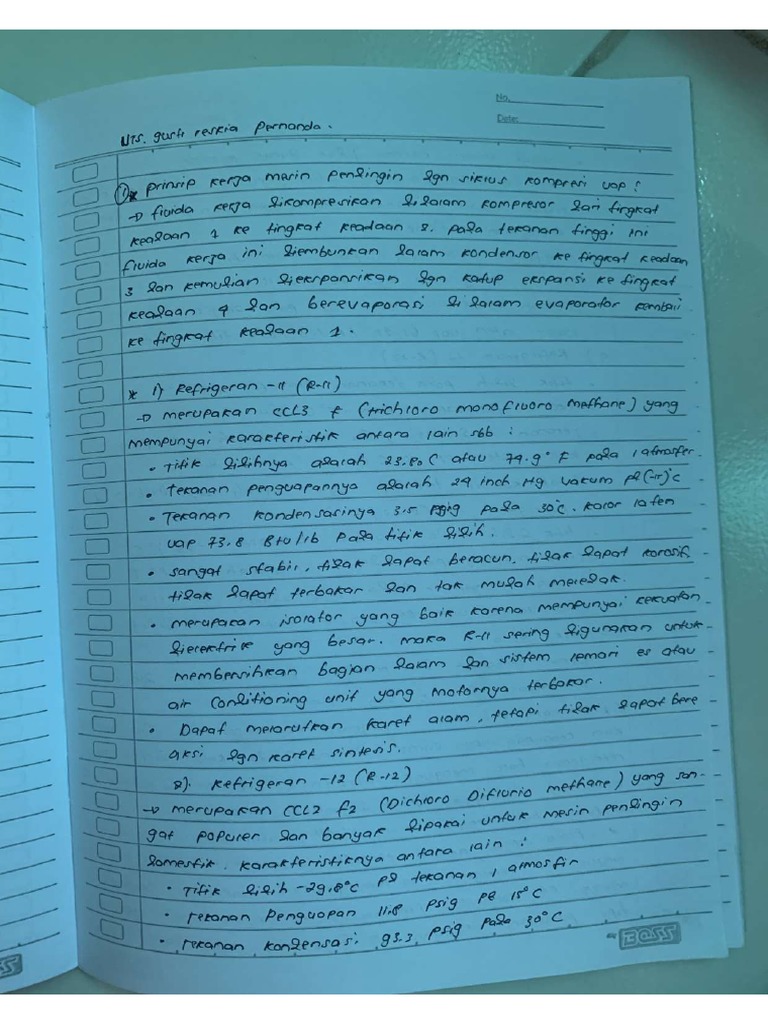 No.
Date:
UTS. gusti reskia Pernanda.
① * prinsip kerja mesin pendingin dgn siklus kompresi uap :
→ fluida kerja dikompresikan didalam kompresor dari tingkat
keadaan 1 ke tingkat keadaan 2. pada tekanan tinggi ini
fluida kerja ini diembunkan dalam kondensor ke tingkat keadaan
3 dan kemudian diekspansikan dgn katup ekspansi ke tingkat
keadaan 4 dan berevaporasi di dalam evaporator kembali
ke tingkat keadaan 1.
* 1) Refrigeran -11 (R-11)
→ merupakan CCL3 F (trichloro monofluoro methane) yang
mempunyai karakteristik antara lain sbb :
• Titik didihnya adalah 23.8°C atau 74.9° F pada 1 atmosfer.
• tekanan penguapannya adalah 24 inch Hg vakum pd (-15)°C
• Tekanan kondensasinya 3.5 psig pada 30°C. kalor laten
uap 73.8 Btu/lb pada titik didih.
• sangat stabil, tidak dapat beracun, tidak dapat korosif
tidak dapat terbakar dan tak mudah meledak.
• merupakan isolator yang baik karena mempunyai kekuatan
dielektrik yang besar. maka R-11 sering digunakan untuk
membersihkan bagian dalam dan sistem lemari es atau
air Conditioning unit yang motornya terbakar.
• Dapat melarutkan karet alam, tetapi tidak dapat bere
aksi dgn karet sintesis.
2). Refrigeran -12 (R-12)
→ merupakan CCL2 F2 (Dichloro Diflurio methane) yang san-
gat populer dan banyak dipakai untuk mesin pendingin
domestik. karakteristiknya antara lain :
• Titik didih -29,8°C pd tekanan 1 atmosfir
• tekanan Penguapan 11.8 psig pe 15°C
• tekanan kondensasi 93.3 psig pada 30°C
BOSS